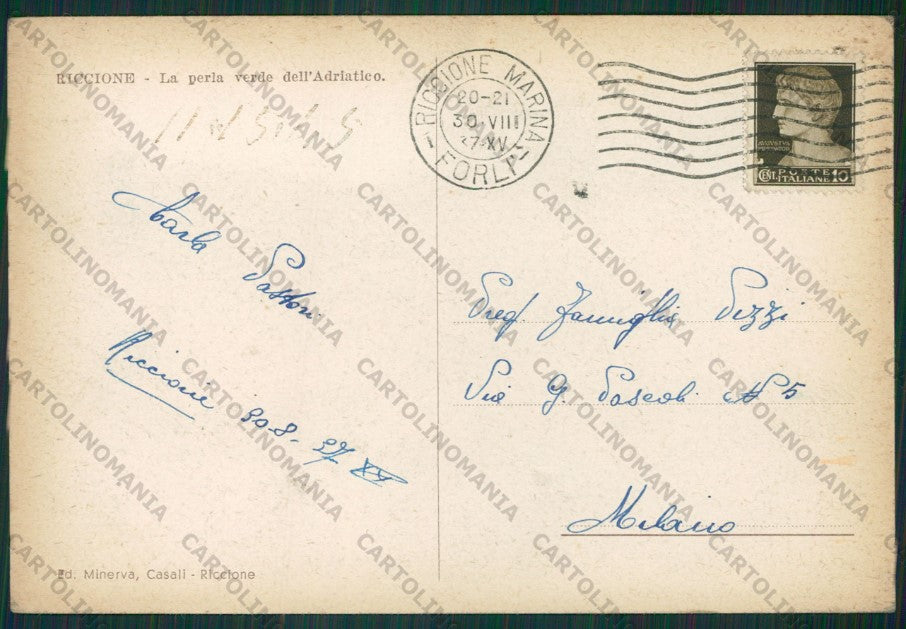 RICCIONE - La perla verde dell'Adriatico.
RICCIONE MARINA
20-21
30 VIII
37-XV
- FORLI -
AVGVSTVS
CENT. POSTE ITALIANE 10
Carla
Riccione 30-8-37 XV
Preg. Famiglia Pizzi
Via G. Pascoli N 5
Milano
Ed. Minerva, Casali - Riccione
CARTOLINOMANIA